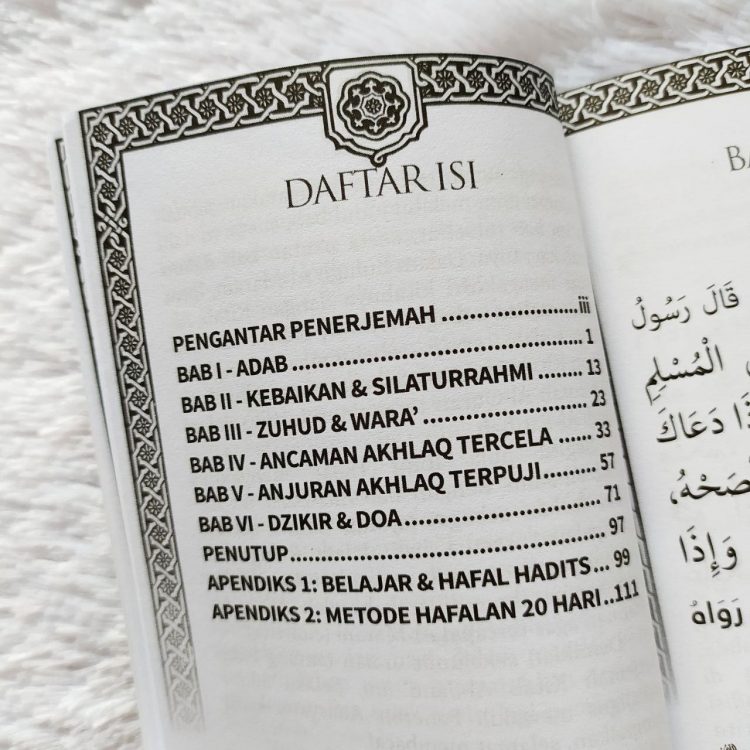 DAFTAR ISI
PENGANTAR PENERJEMAH .......................... iii
BAB I - ADAB ...................................................... 1
BAB II - KEBAIKAN & SILATURRAHMI ........ 13
BAB III - ZUHUD & WARA’ ............................. 23
BAB IV - ANCAMAN AKHLAQ TERCELA ...... 33
BAB V - ANJURAN AKHLAQ TERPUJI .......... 57
BAB VI - DZIKIR & DOA .................................... 71
PENUTUP ............................................................. 97
APENDIKS 1: BELAJAR & HAFAL HADITS ... 99
APENDIKS 2: METODE HAFALAN 20 HARI ..111
BA
قَالَ رَسُولُ
الْمُسْلِمِ
دَعَاكَ
وَإِذَا
رَوَاهُ